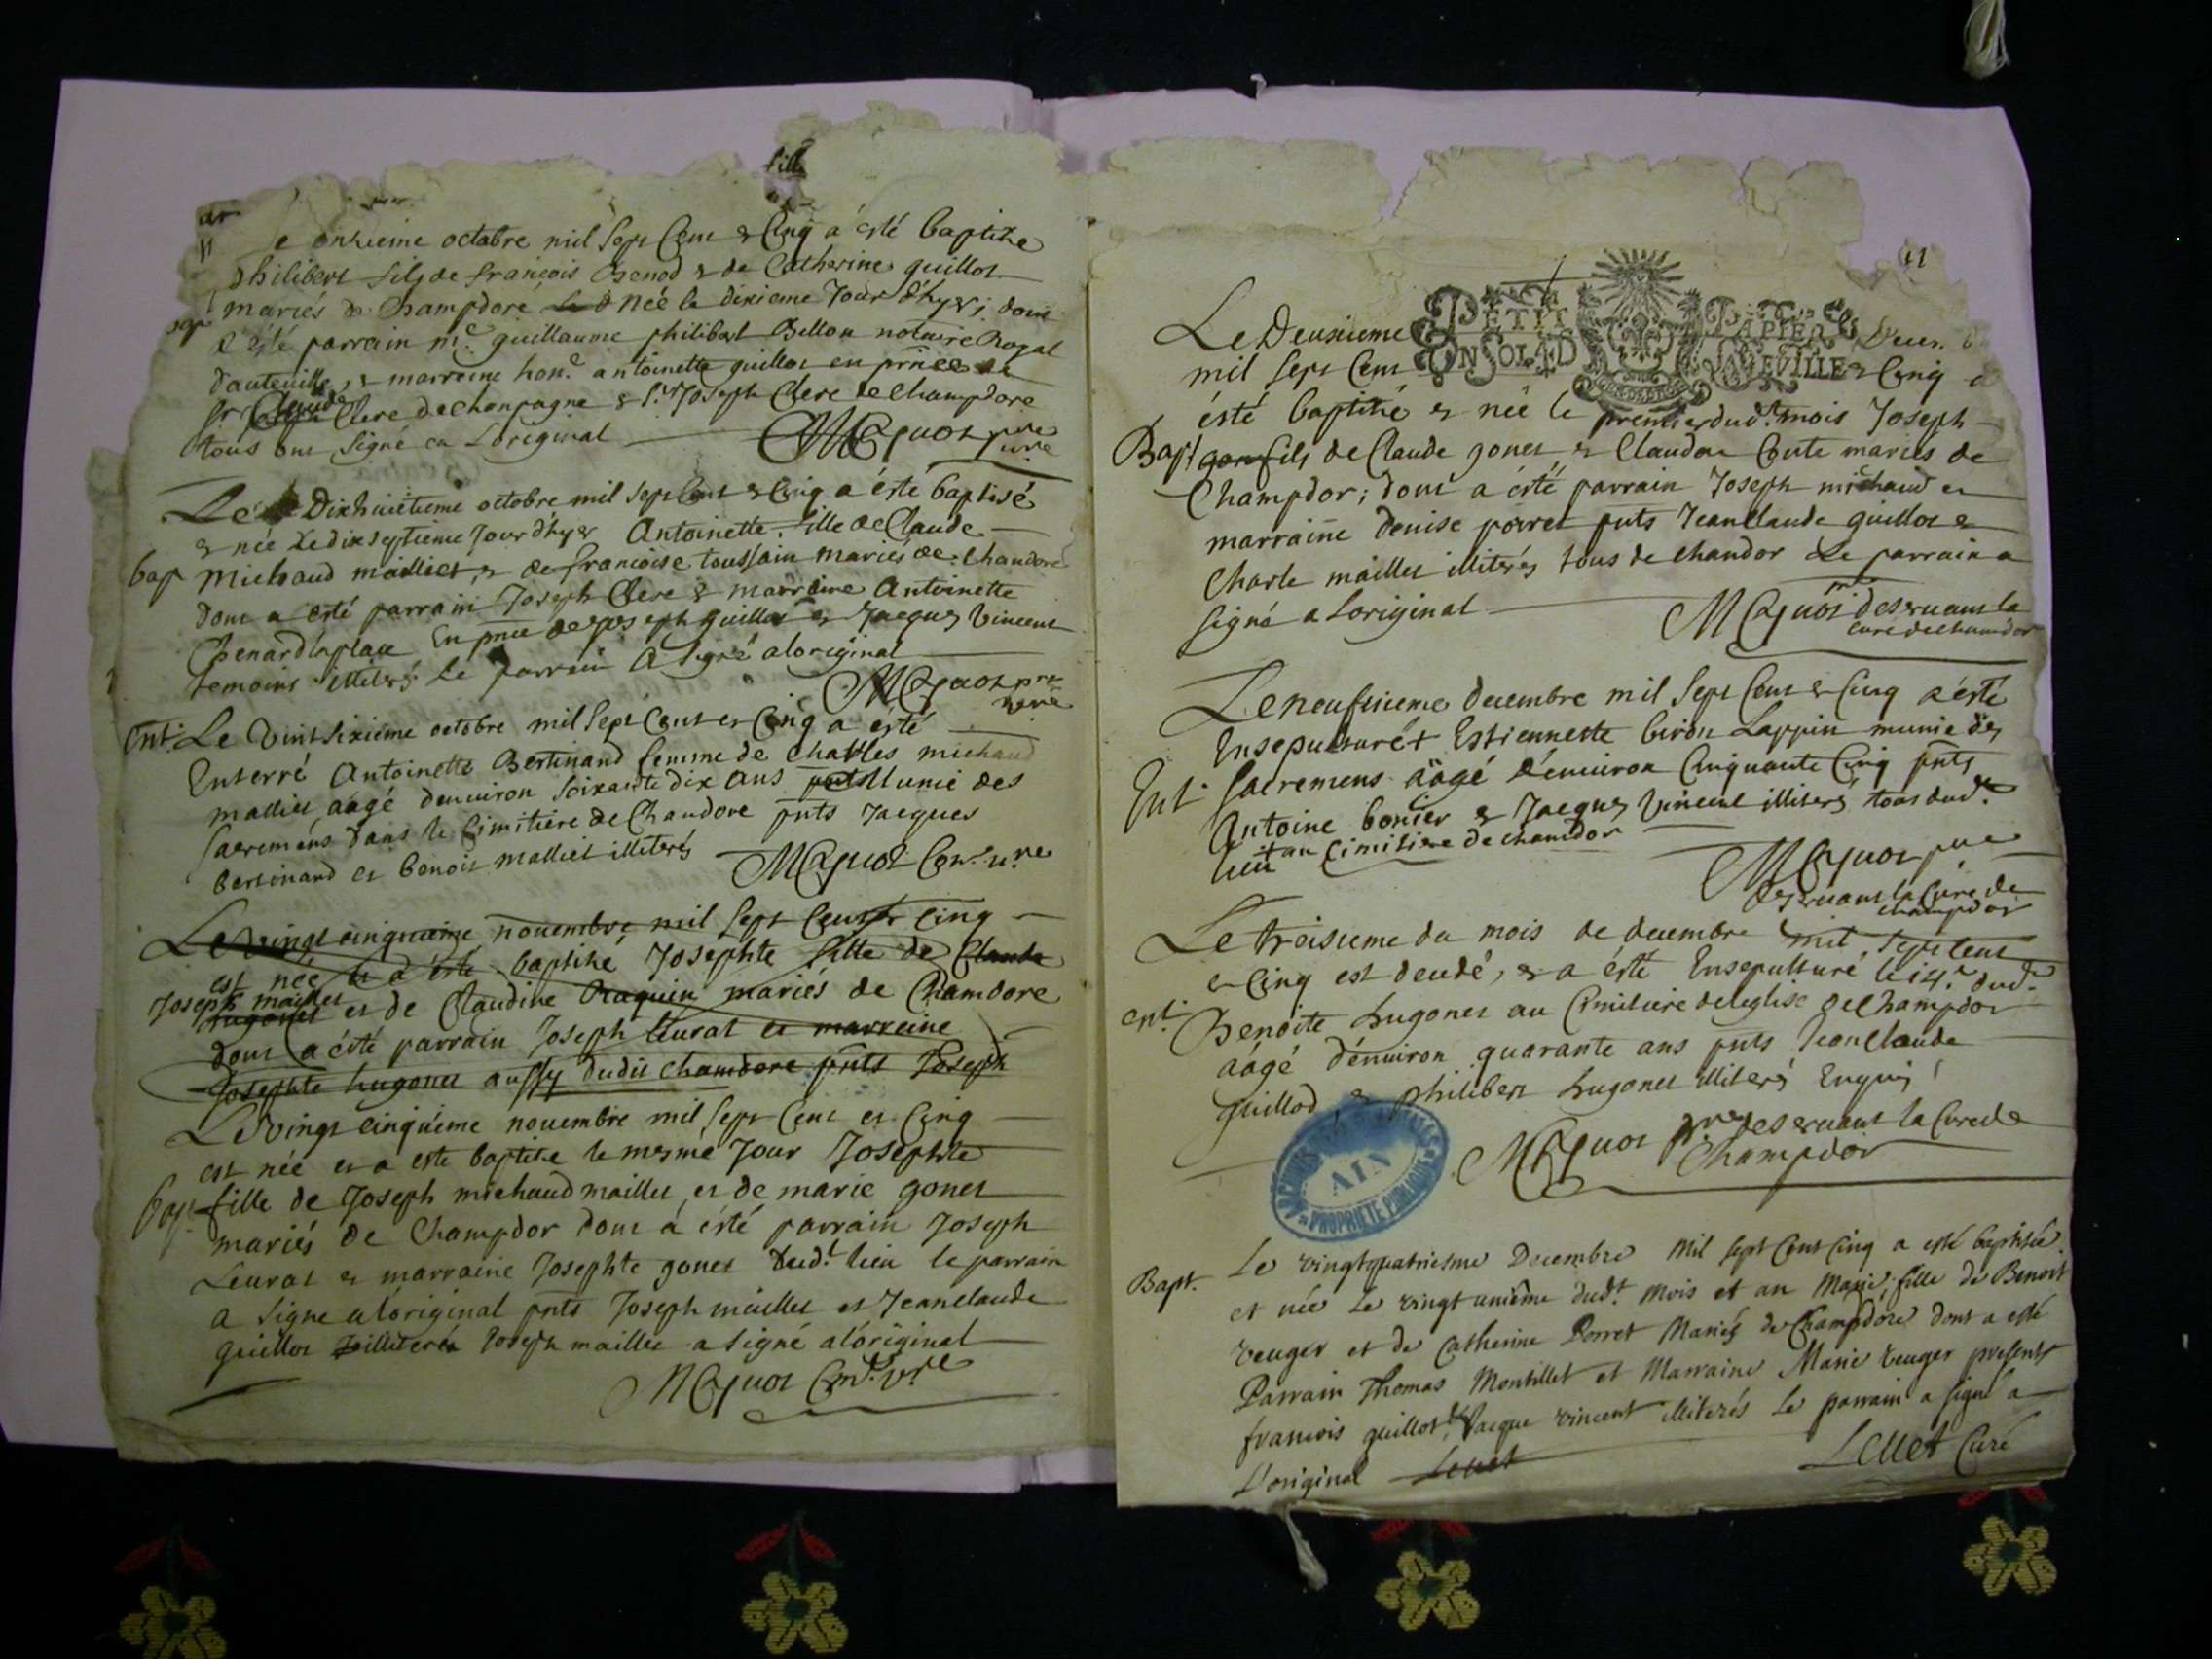 fille
11
Le onzieme octobre mil Sept Cent & Cinq a ésté baptize
philibert fils de francois Benod & de Catherine guillot
mariés de Champdore Le & Née le dixieme Jour d'hyer; dont
bap
a ésté parrain me. guillaume philibert Billon notaire Royal
d'auteuille, & marreine hone. antoinette guillot en prnce de
sr Claude Clere de Chanpagne & Sr. Joseph Clere de Champdore
tous ont signé en Loriginal
MCquot
Le Dixhuictieme octobre mil sept Cent & Cinq a ésté baptisé
& née Le dix septieme Jour dhyer Antoinette fille de Claude
bap Michaud malliet, & de francoise toussain mariés de Chandore
dont a esté parrain Joseph Clere & marreine Antoinette
Benard laplace En pnce de Joseph guillot & Jacques Vincent
temoins illiterés Le parrain A signé a loriginal
MCquot pre
Ent. Le Vint Sixiéme octobre mil Sept Cent et Cinq a ésté
Enterré Antoinette Bertinand femme de Charles michaud
malliet, aagé denviron soixante dix ans pnts Munie des
sacremens dans le Cimitiere de Chandore pnts Jacques
bertinand et benoit malliet illiterés
MCquot
Le vingt cinquieme novembre mil sept Cent & cinq
est née & a esté baptizé Josephte fille de Claude
Joseph mailliet
hugonet et de ClaudineRaquin mariés de Chamdore
dont a ésté parrain Joseph Leurat et marreine
Josephte hugonet aussy dudit Chamdore pnts Joseph
Le vingt cinquiéme novembre mil sept Cent et Cinq
est née et a este baptize le mesme Jour Josephte
bap. fille de Joseph michaud maillet, et de marie gonet
mariés de Champdor dont á ésté parrain Joseph
Leurat & marraine Josephte gonet dudt. lieu le parrain
a Signe a l'original pnts Joseph maillet et Jeanclaude
guillot illiterés Joseph maillet a signé a l'original
MCquot
11
PETIT PAPIER
UN SOL LA DEVILLE
Le Deuxieme
mil Sept Cent & Cinq a
ésté baptizé & née le premier dudt. mois Joseph
Bapt gon fils de Claude gonet & Claudne Conte mariés de
Champdor; dont a ésté parrain Joseph michaud et
marrainne denise porret pnts Jeanclaude guillot &
Charle maillet illiterés tous de chandor Le parrain a
signé a Loriginal
MCquot pre deservant la
cure de chamdor
Le neufvieme decembre mil Sept Cent & Cinq a ésté
Ensepulturé + Estiennette biron Lappin munie des
Ent. sacremens aägé d'environ Cinquante Cinq pnts
Antoine bonier & Jacques Vincent illiterés tous dudt.
lieu + au Cimitiere de chamdor
MCquot pre
deservant la Cure de
champdor
Le treisieme du mois de decembre mil, sept Cent
& Cinq est decedé, & a ésté Ensepulturé le 14e. dudt.
ent. Benoite hugonet au Cimitiere de leglise de Champdor
aägé d'environ quarante ans pnts Jeanclaude
guillod, & philibert hugonet illiterés Enquis
MCquot pre deservant la Cure de
Champdor
ARCHIVES
AIN
PROPRIÉTÉ PUBLIQUE
Le vingtquatriesme Decembre mil sept Cent Cinq a esté baptisée
Bapt.
et née Le vingt uniême dudt. mois et an Marie, fille de Benoit
veuger et de Catherine Porret Mariés de Champdore dont a esté
Parrain Thomas Montillet et Marraine Marie veuger presents
francois guillot, & Jacque vincent illiterés Le parrain a signé a
L'original Leuet
Leuet Curé